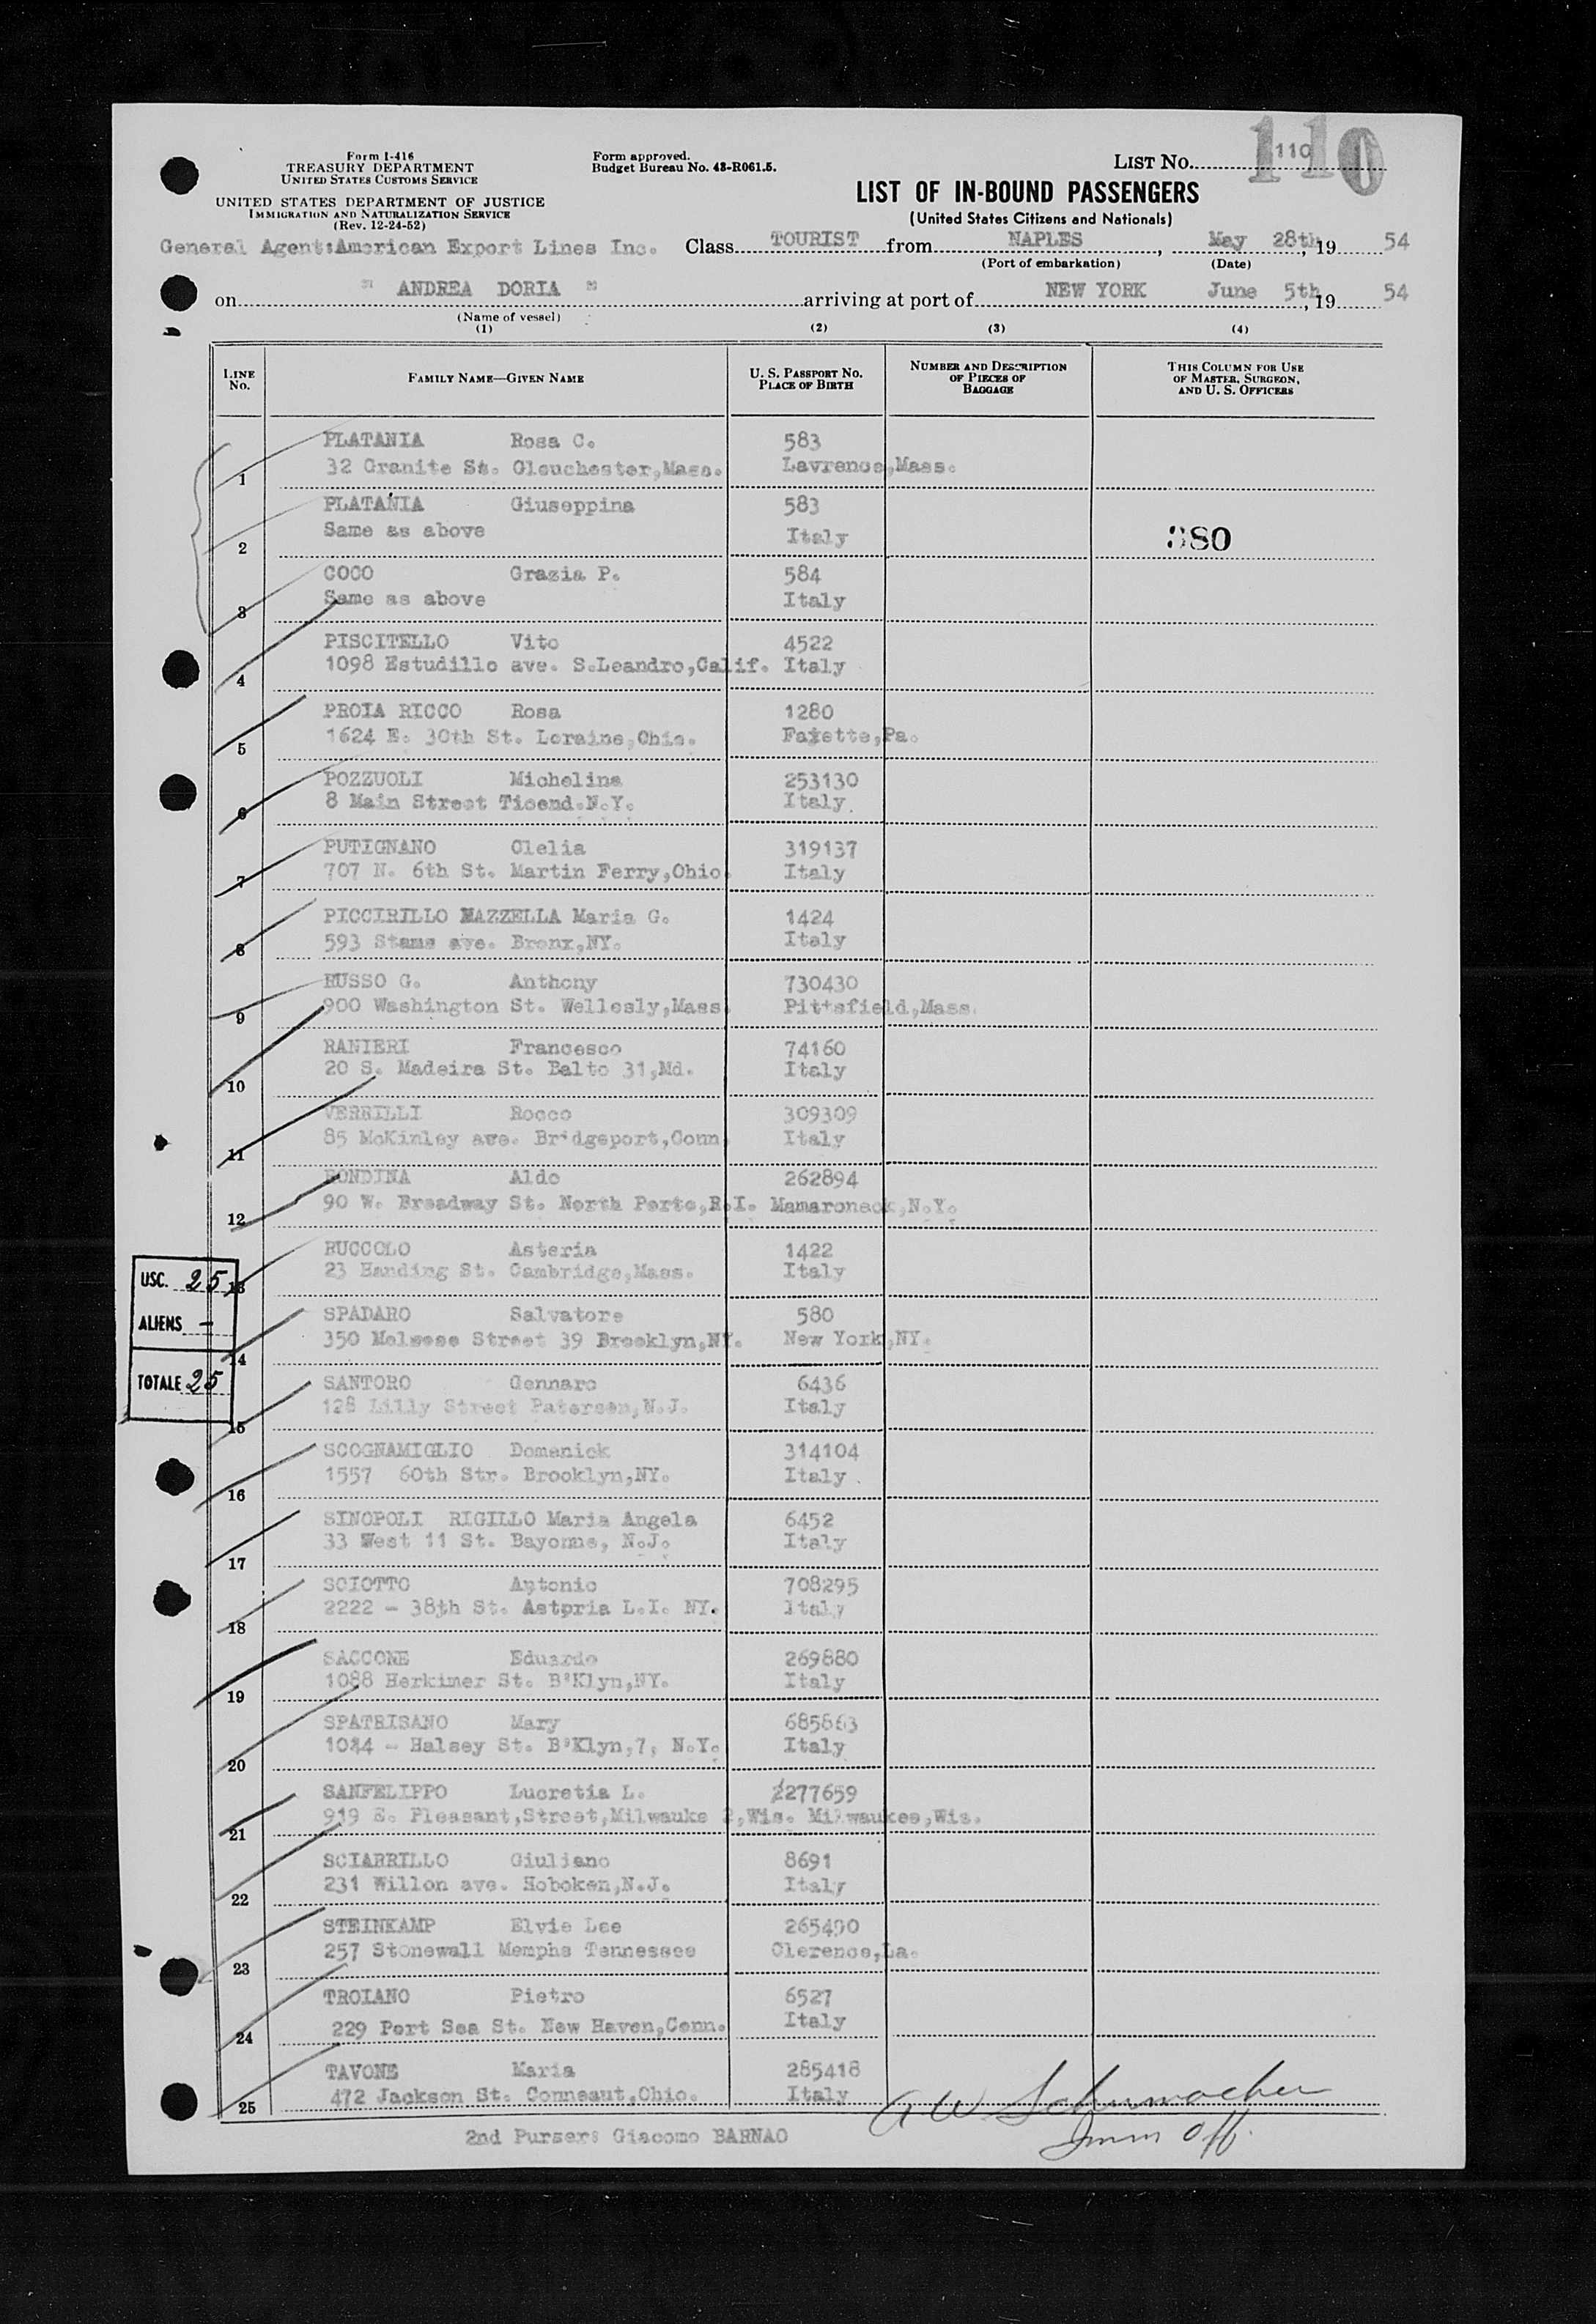 Form I-416
TREASURY DEPARTMENT
UNITED STATES CUSTOMS SERVICE
UNITED STATES DEPARTMENT OF JUSTICE
IMMIGRATION AND NATURALIZATION SERVICE
(Rev. 12-24-52)
Form approved.
Budget Bureau No. 43-R061.5.
LIST No. 110
110
LIST OF IN-BOUND PASSENGERS
(United States Citizens and Nationals)
General Agent:American Export Lines Inc. Class TOURIST from NAPLES, May 28th, 19 54
(Port of embarkation) (Date)
on " ANDREA DORIA " arriving at port of NEW YORK June 5th, 19 54
(Name of vessel)
(1) (2) (3) (4)
LINE No. FAMILY NAME—GIVEN NAME U. S. PASSPORT NO. PLACE OF BIRTH NUMBER AND DESCRIPTION OF PIECES OF BAGGAGE THIS COLUMN FOR USE OF MASTER, SURGEON, AND U. S. OFFICERS
PLATANIA Rosa C. 583
1 32 Granite St. Glouchester,Mass. Lavrence,Mass.
PLATANIA Giuseppina 583
2 Same as above Italy 380
COCO Grazia P. 584
3 Same as above Italy
PISCITELLO Vito 4522
4 1098 Estudillo ave. S.Leandro,Calif. Italy
PROIA RICCO Rosa 1280
5 1624 E. 30th St. Loraine,Ohio. Fayette,Pa.
POZZUOLI Michelina 253130
6 8 Main Street Ticend.N.Y. Italy
PUTIGNANO Clelia 319137
7 707 N. 6th St. Martin Ferry,Ohio. Italy
PICCIRILLO MAZZELLA Maria G. 1424
8 593 Stams ave. Bronx,NY. Italy
RUSSO G. Anthony 730430
9 900 Washington St. Wellesly,Mass. Pittsfield,Mass.
RANIERI Francesco 74160
10 20 S. Madeira St. Balto 31,Md. Italy
VERRILLI Rocco 309309
11 85 McKinley ave. Bridgeport,Conn. Italy
Aldo 262894
12 90 W. Broadway St. North Porto,R.I. Mamaroneck,N.Y.
RUCCOLO Asteria 1422
13 23 Handing St. Cambridge,Mass. Italy
USC. 25
ALIENS —
TOTALE 25
SPADARO Salvatore 580
14 350 Street 39 Brooklyn,NY. New York,NY.
SANTORO Gennaro 6436
15 128 Lilly Street Paterson,N.J. Italy
SCOGNAMIGLIO Domenick 314104
16 1557 60th Str. Brooklyn,NY. Italy
SINOPOLI RIGILLO Maria Angela 6452
17 33 West 11 St. Bayonne, N.J. Italy
SCIOTTO Antonio 708295
18 2222 - 38th St. Astpria L.I. NY. Italy
SACCONE Eduardo 269880
19 1088 Herkimer St. B'Klyn,NY. Italy
SPATRISANO Mary 685863
20 - Halsey St. B'Klyn,7, N.Y. Italy
SANFELIPPO Lucretia L. 277659
21 919 E. Pleasant,Street,Milwauke 2,Wis. Milwaukee,Wis.
SCIABRILLO Giuliano 8691
22 231 Willon ave. Hoboken,N.J. Italy
STEINKAMP Elvie Lee 265490
23 257 Stonewall Memphs Tennessee Clerence,La.
TROIANO Pietro 6527
24 229 Port Sea St. New Haven,Conn. Italy
TAVONE Maria 285418
25 472 Jackson St. Conneaut,Ohio. Italy
A W Schumacher
Imm Off.
2nd Purser: Giacomo BARNAO